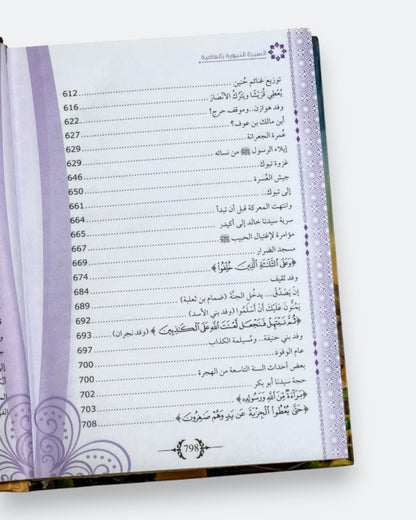 السيرة النبوية بالعامية
توزيع غنائم حُنين 612
يُعْطِي قُرَيْشًا ويَتْرُكُ الأَنْصَارَ 616
وفد هوازن..وموقف حرج! 622
أين مالك بن عوف؟ 627
عُمرة الجعرانة 629
إيلاء الرسول ﷺ من نسائه 629
غزوة تبوك 646
جيش العُسرة 650
إلى تبوك 661
وانتهت المعركة قبل أن تبدأ 664
سرية سيدنا خالد إلى أكيدر 665
مؤامرة لإغتيال الحبيب ﷺ 667
مسجد الضرار 669
﴿وَعَلَى ٱلثَّلَـٰثَةِ ٱلَّذِينَ خُلِّفُوا۟﴾ 674
وفد ثقيف 684
إنْ يَصْدُقْ... يدخُلِ الجنَّةَ (ضمام بن ثعلبة) 689
يَمُنُّونَ عَلَيْكَ أَنْ أَسْلَمُوا (وفد بني الأسد) 692
﴿ثُمَّ نَبْتَهِلْ فَنَجْعَل لَّعْنَتَ ٱللَّهِ عَلَى ٱلْكَـٰذِبِينَ﴾ (وفد نجران) 693
وفد بني حنيفة.. ومُسيلمة الكذاب 697
عام الوفود 700
بعض أحداث السنة التاسعة من الهجرة 700
حجة سيدنا أبو بكر 702
﴿بَرَآءَةٌ مِّنَ ٱللَّهِ وَرَسُولِهِۦ﴾ 703
﴿حَتَّىٰ يُعْطُوا۟ ٱلْجِزْيَةَ عَن يَدٍ وَهُمْ صَـٰغِرُونَ﴾ 708
798